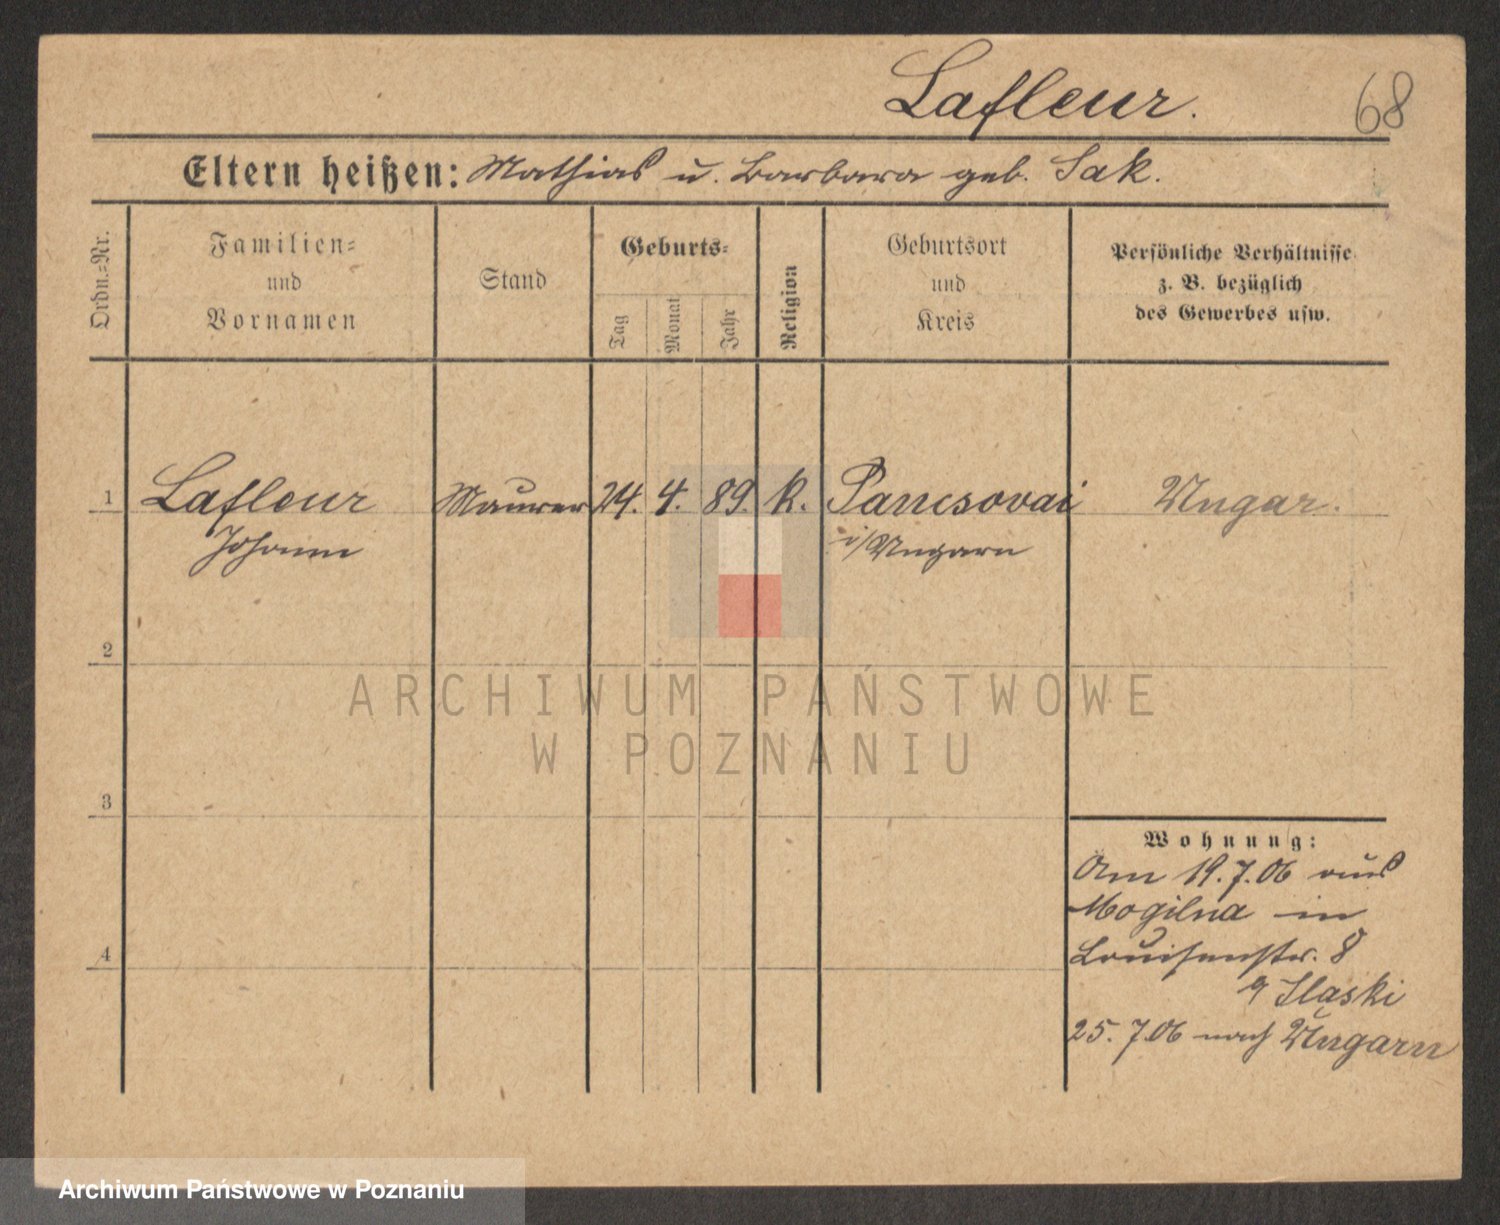 Lafleur.
68
Eltern heißen: Mathias u. Barbara geb. Sak.
Ordn.-Nr.
Familien-
und
Vornamen
Stand
Geburts-
Tag
Monat
Jahr
Religion
Geburtsort
und
Kreis
Persönliche Verhältnisse
z. B. bezüglich
des Gewerbes usw.
1 Lafleur Maurer 24. 4. 89. k. Pancsovai Ungar.
Johann i/Ungarn
2
ARCHIWUM PAŃSTWOWE
W POZNANIU
3
Wohnung:
Am 19.7.06 aus
Mogilna in
Louisenstr. 8
Slaski
4
25. 7.06 nach Ungarn
Archiwum Państwowe w Poznaniu